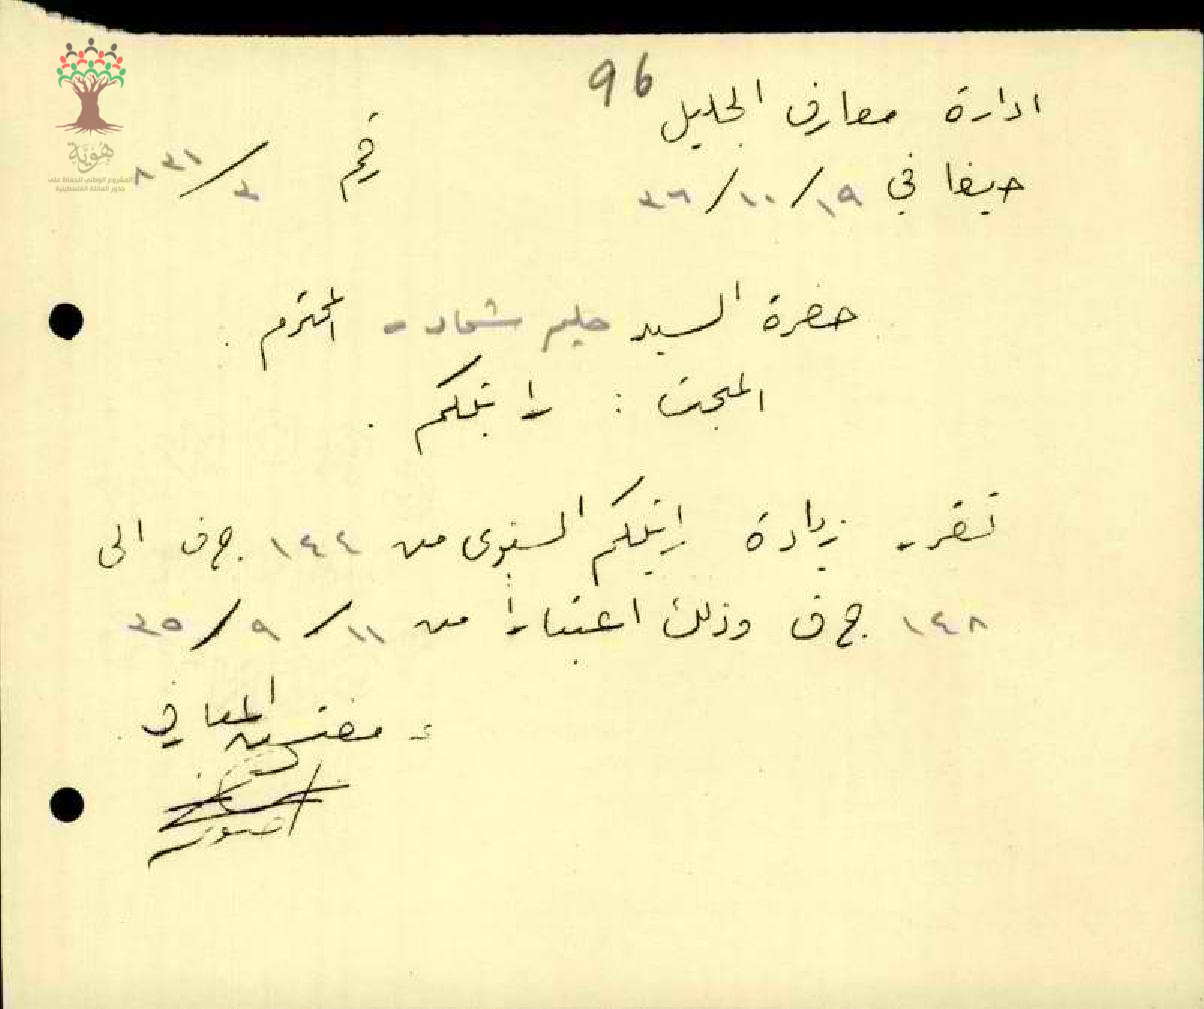 96
ادارة معارف الجليل
حيفا في ١٩/١٠/٣٦ رقم ٣/٨٣١
حضرة السيد حليم شحادة المحترم.
المبحث : راتبكم.
تقرر زيادة راتبكم السنوي من ١٤٤ ج ف الى
١٤٨ ج ف وذلك اعتباراً من ١١/٩/٣٥
مفتش المعارف
هوية
المشروع الوطني للحفاظ على
جذور العائلة الفلسطينية